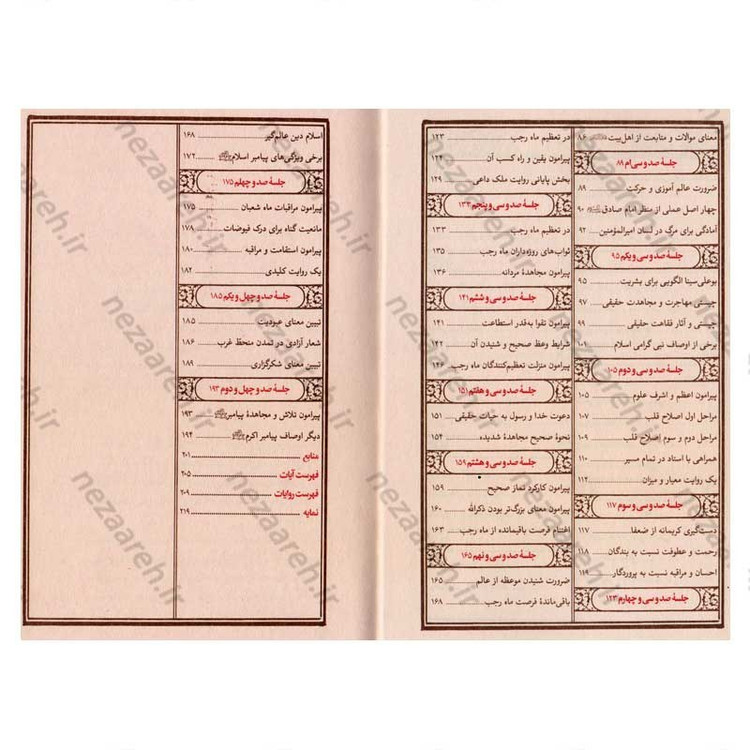 معنای موالات و متابعت از اهل‌بیت ۸۶
جلسهٔ صدوسی‌اُم ۸۹
ضرورت عالم آموزی و حرکت ۸۹
چهار اصل عملی از منظر امام صادق ۹۰
آمادگی برای مرگ در لسان امیرالمؤمنین ۹۲
جلسهٔ صدوسی‌ویکم ۹۵
بوعلی‌سینا الگویی برای بشریت ۹۵
چیستی مهاجرت و مجاهدت حقیقی ۹۷
چیستی و آثار فقاهت حقیقی ۹۹
برخی از اوصاف نبی گرامی اسلام ۱۰۱
جلسهٔ صدوسی‌ودوم ۱۰۵
پیرامون اعظم و اشرف علوم ۱۰۵
مراحل اول اصلاح قلب ۱۰۷
مراحل دوم و سوم إصلاح قلب ۱۰۹
همراهی با استاد در تمام مسیر ۱۱۰
یک روایت معیار و میزان ۱۱۲
جلسهٔ صدوسی‌وسوم ۱۱۷
دست‌گیری کریمانه از ضعفا ۱۱۷
رحمت و عطوفت نسبت به بندگان ۱۱۸
احسان و مراقبه نسبت به پروردگار ۱۱۹
جلسهٔ صدوسی‌وچهارم ۱۲۳
در تعظیم ماه رجب ۱۲۳
پیرامون یقین و راه کسب آن ۱۲۴
بخش پایانی روایت ملک داعی ۱۲۹
جلسهٔ صدوسی‌وپنجم ۱۳۳
در تعظیم ماه رجب ۱۳۳
ثواب‌های روزه‌داران ماه رجب ۱۳۵
پیرامون مجاهدهٔ مردانه ۱۳۶
جلسهٔ صدوسی‌وششم ۱۴۱
پیرامون تقوا به‌قدر استطاعت ۱۴۱
شرایط وعظ صحیح و شنیدن آن ۱۴۲
پیرامون منزلت تعظیم‌کنندگان ماه رجب ۱۴۶
جلسهٔ صدوسی‌وهفتم ۱۵۱
دعوت خدا و رسول به حیات حقیقی ۱۵۱
نحوهٔ صحیح مجاهدهٔ شدیده ۱۵۴
جلسهٔ صدوسی‌وهشتم ۱۵۹
پیرامون کارکرد نماز صحیح ۱۵۹
پیرامون معنای بزرگ‌تر بودن ذکرالله ۱۶۰
اغتنام فرصت باقیمانده از ماه رجب ۱۶۳
جلسهٔ صدوسی‌ونهم ۱۶۵
ضرورت شنیدن موعظه از عالم ۱۶۵
باقی‌ماندهٔ فرصت ماه رجب ۱۶۸
اسلام دین عالم‌گیر ۱۶۸
برخی ویژگی‌های پیامبر اسلام ۱۷۲
جلسهٔ صدوچهلم ۱۷۵
پیرامون مراقبات ماه شعبان ۱۷۵
مانعیت گناه برای درک فیوضات ۱۷۸
پیرامون استقامت و مراقبه ۱۸۰
یک روایت کلیدی ۱۸۲
جلسهٔ صدوچهل‌ویکم ۱۸۵
تبیین معنای عبودیت ۱۸۵
شعار آزادی در تمدن منحط غرب ۱۸۶
تبیین معنای شکرگزاری ۱۸۹
جلسهٔ صدوچهل‌ودوم ۱۹۳
پیرامون تلاش و مجاهدهٔ پیامبر ۱۹۳
دیگر اوصاف پیامبر اکرم ۱۹۴
منابع ۲۰۱
فهرست آیات ۲۰۵
فهرست روایات ۲۰۹
نمایه ۲۱۹
nezaareh.ir